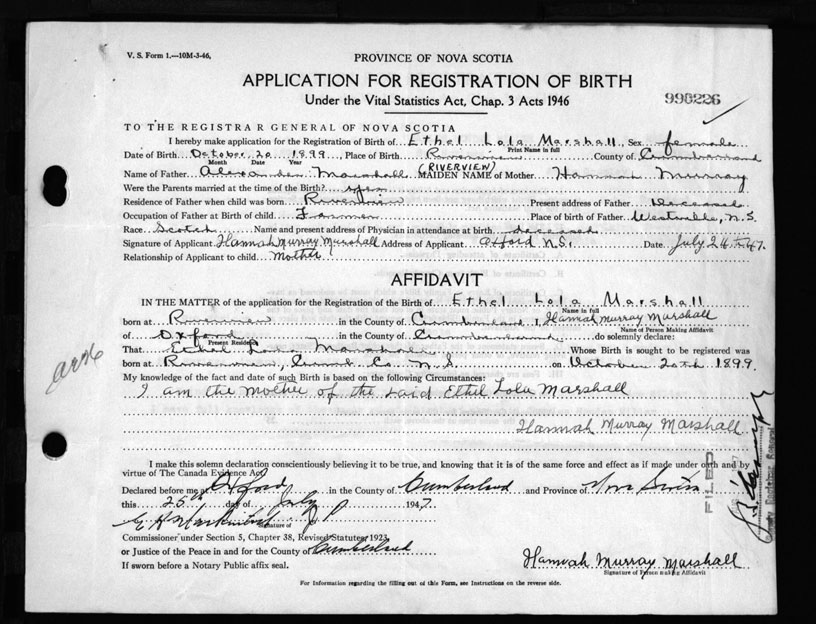 V. S. Form 1.—10M-3-46,
PROVINCE OF NOVA SCOTIA
APPLICATION FOR REGISTRATION OF BIRTH
Under the Vital Statistics Act, Chap. 3 Acts 1946
998226
TO THE REGISTRAR GENERAL OF NOVA SCOTIA
I hereby make application for the Registration of Birth of Ethel Lola Marshall, Sex female
Print Name in full
Date of Birth October 20 1899, Place of Birth Riverview County of Cumberland
Month Date Year
(RIVERVIEW)
Name of Father Alexander Marshall MAIDEN NAME of Mother Hannah Murray
Were the Parents married at the time of the Birth? yes
Residence of Father when child was born Riverview Present address of Father Deceased
Occupation of Father at Birth of child Farmer Place of birth of Father Westville, N.S.
Race Scotch Name and present address of Physician in attendance at birth deceased
Signature of Applicant Hannah Murray Marshall Address of Applicant Oxford N.S. Date July 24th 47.
Relationship of Applicant to child Mother
AFFIDAVIT
IN THE MATTER of the application for the Registration of the Birth of Ethel Lola Marshall
Name in full
born at Riverview in the County of Cumberland I, Hannah Murray Marshall
Name of Person Making Affidavit
of Oxford in the County of Cumberland do solemnly declare:
Present Residence
That Ethel Lola Marshall Whose Birth is sought to be registered was
born at Riverview, Cumb. Co. N.S. on October 20th 1899.
My knowledge of the fact and date of such Birth is based on the following Circumstances:
I am the mother of the said Ethel Lola Marshall
Hannah Murray Marshall
I make this solemn declaration conscientiously believing it to be true, and knowing that it is of the same force and effect as if made under oath and by
virtue of The Canada Evidence Act.
Declared before me at Oxford in the County of Cumberland and Province of Nova Scotia
this 25th day of July 1947.
J P
Signature of
Commissioner under Section 5, Chapter 38, Revised Statutes, 1923,
or Justice of the Peace in and for the County of Cumberland
If sworn before a Notary Public affix seal.
Hannah Murray Marshall
Signature of Person making Affidavit
For Information regarding the filling out of this Form, see Instructions on the reverse side.
FILED